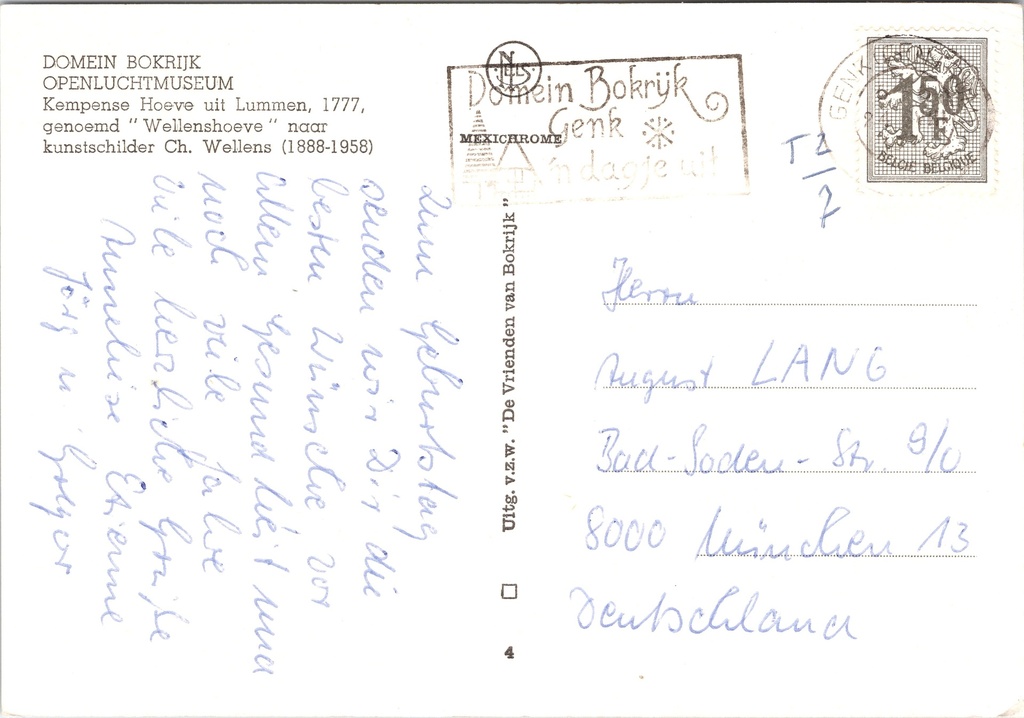 DOMEIN BOKRIJK
OPENLUCHTMUSEUM
Kempense Hoeve uit Lummen, 1777,
genoemd "Wellenshoeve" naar
kunstschilder Ch. Wellens (1888-1958)
NELS
MEXICHROME
Domein Bokrijk
Genk
'n dagje uit
GENK
1F50
BELGIE BELGIQUE
T 1
7
Zum Geburtstag
senden wir Dir die
besten Wünsche vor
allem Gesundheit und
noch viele Jahre
viele herzliche Grüße
Anneliese Etienne
Jörg u.
Uitg. v.z.w. "De Vrienden van Bokrijk"
4
Herrn
August LANG
Bad-Soden-Str. 9/0
8000 München 13
Deutschland